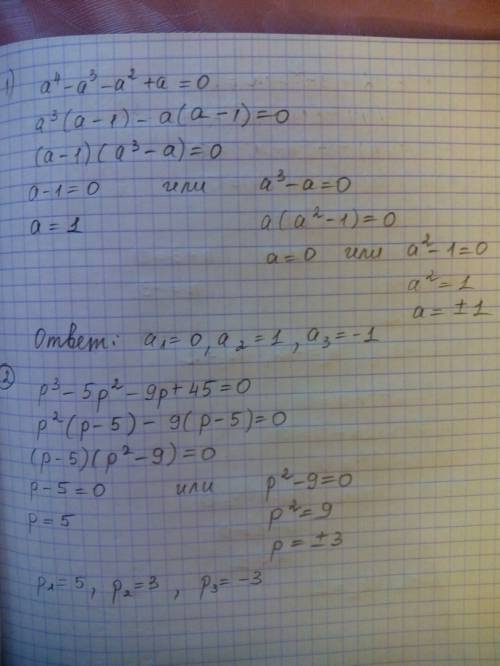 1) a⁴ - a³ - a² + a = 0
a³(a - 1) - a(a - 1) = 0
(a - 1)(a³ - a) = 0
a - 1 = 0 или a³ - a = 0
a = 1 a(a² - 1) = 0
a = 0 или a² - 1 = 0
a² = 1
a = ± 1
Ответ: a₁ = 0, a₂ = 1, a₃ = -1
2 p³ - 5p² - 9p + 45 = 0
p²(p - 5) - 9(p - 5) = 0
(p - 5)(p² - 9) = 0
p - 5 = 0 или p² - 9 = 0
p = 5 p² = 9
p = ± 3
p₁ = 5, p₂ = 3, p₃ = -3